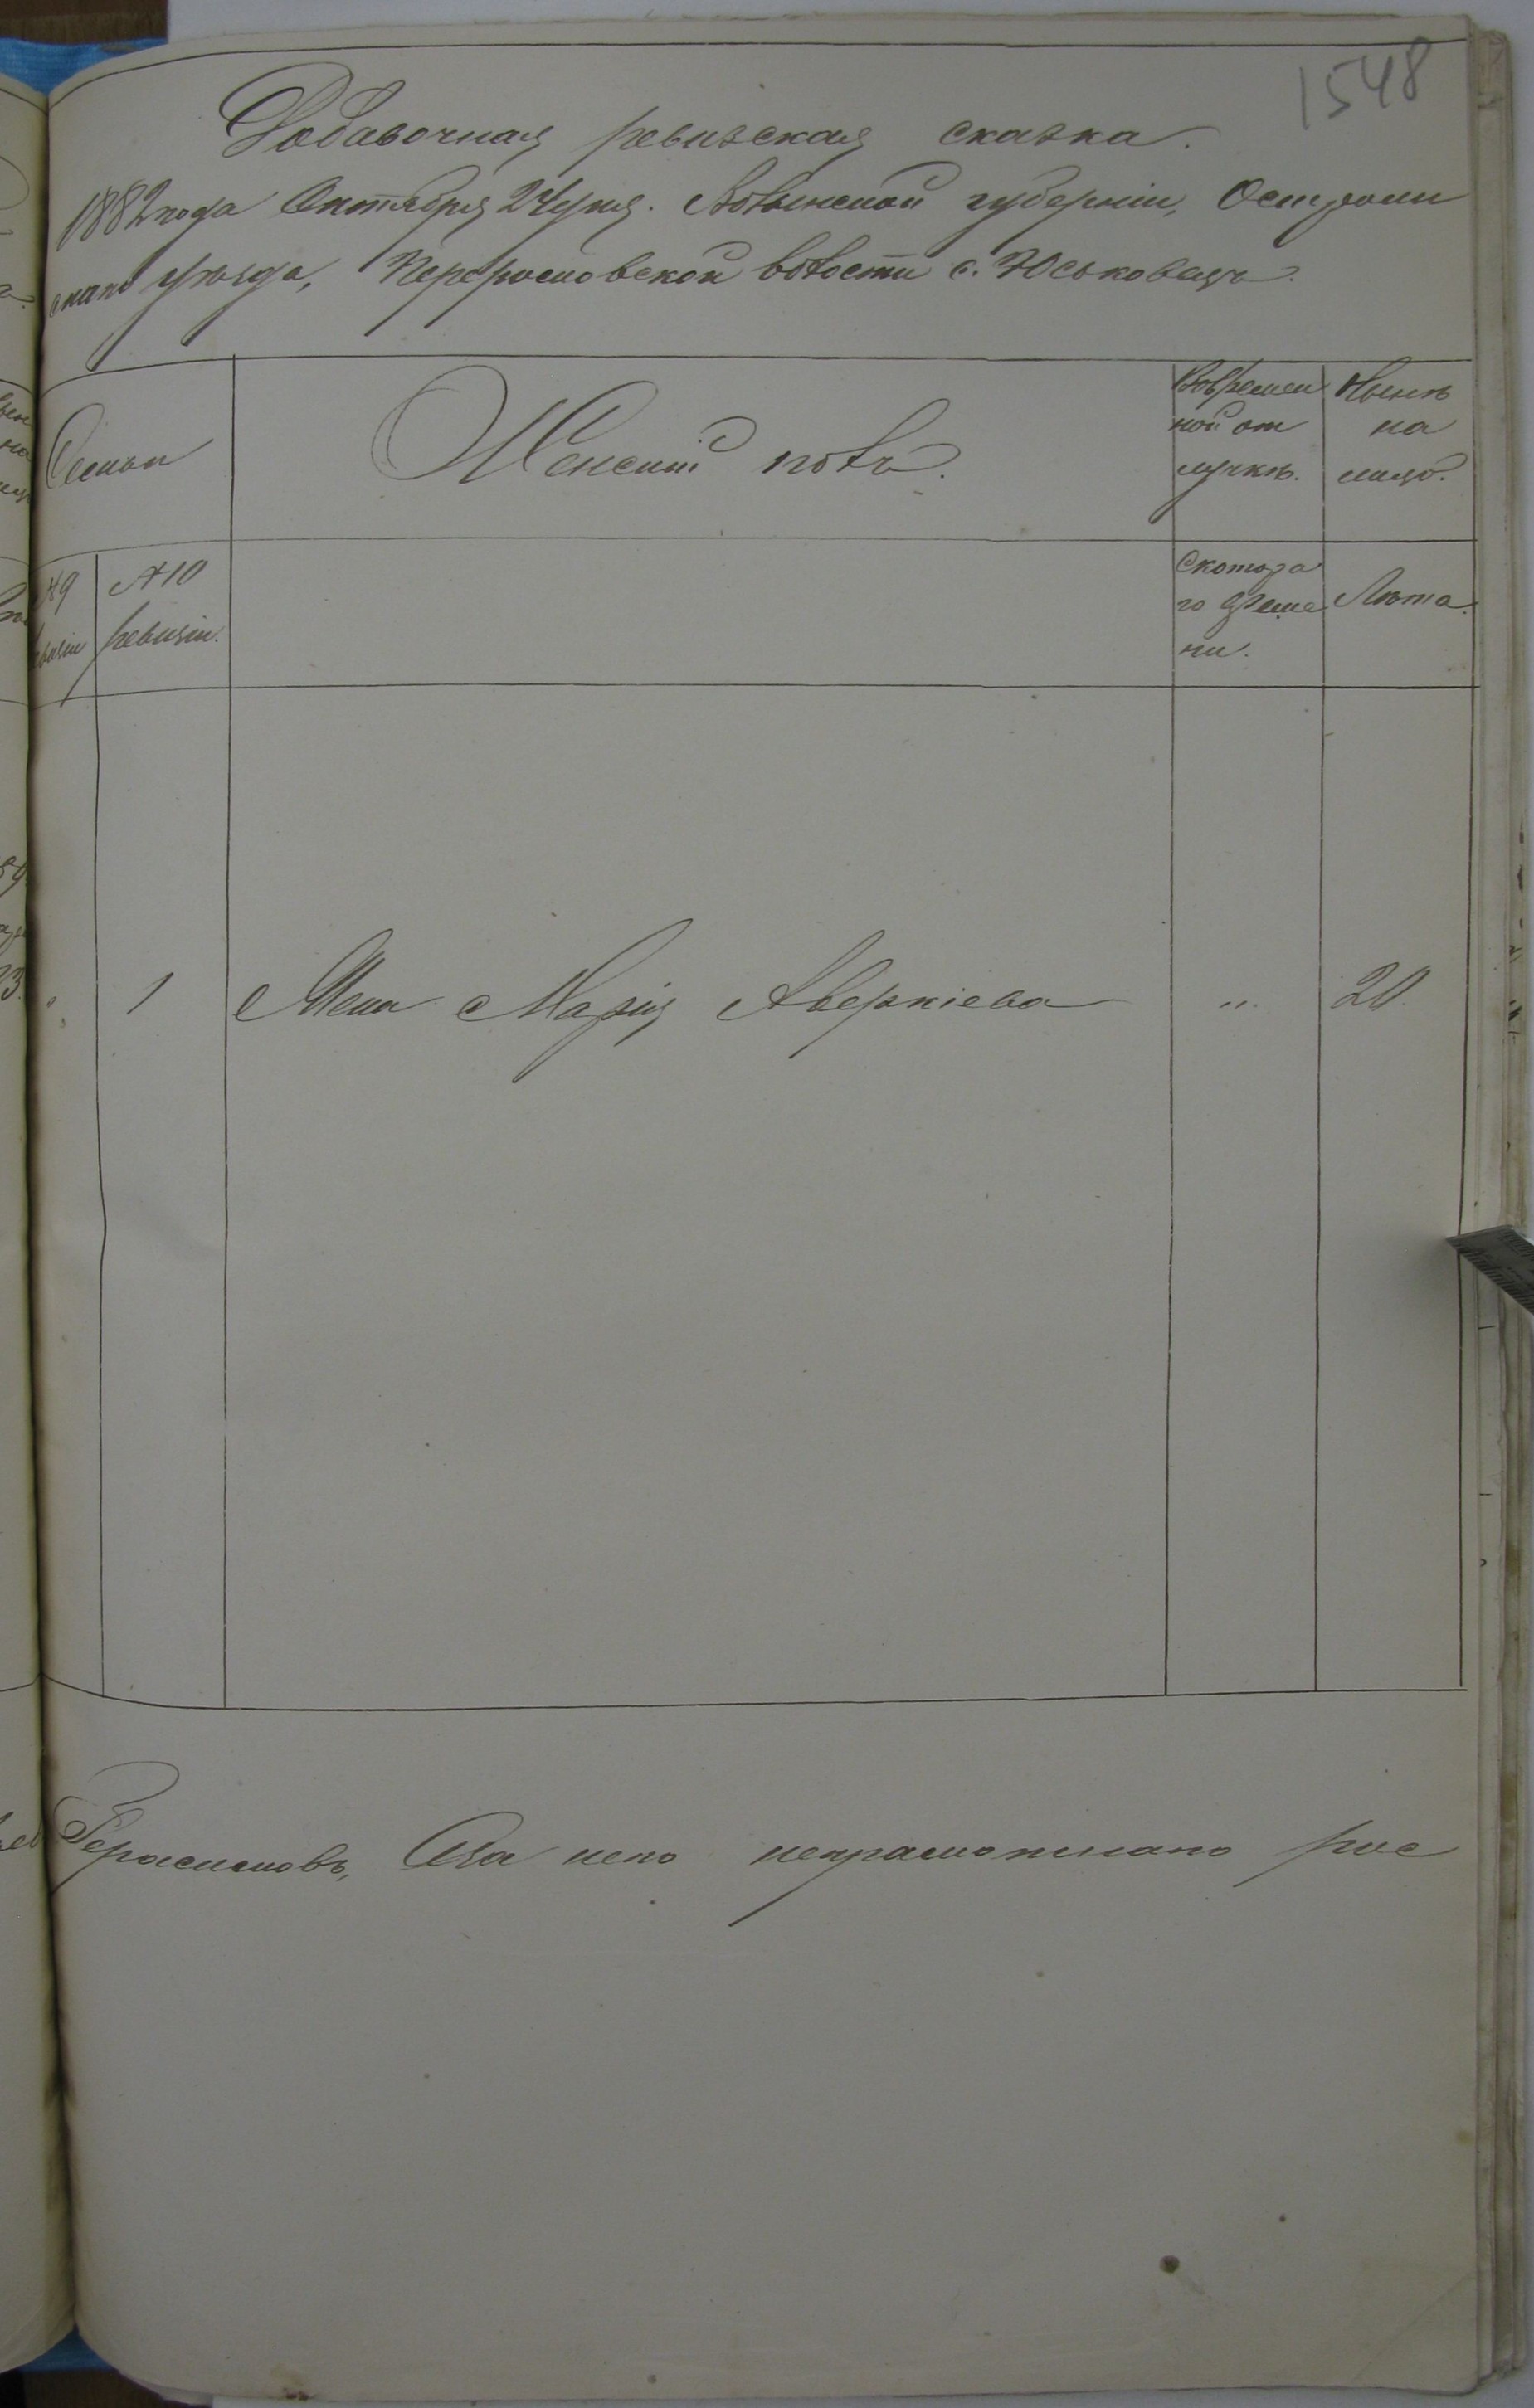 1548
Добавочная ревизская сказка.
1882 года Октября 24 дня. Волынской губерніи, Острож
скаго уѣзда, Перерословской волости с. Юськовецъ.
Семьи
Женскій полъ.
Вовремен
ной от
лучкѣ.
Нынѣ
на
лицо.
№9
ревизіи
№10
ревизіи.
Скотора
го време
ни.
Лѣта.
1 Жена Марія Аверкіева " 20.
Герасимовъ, За него неграмотнаго рос